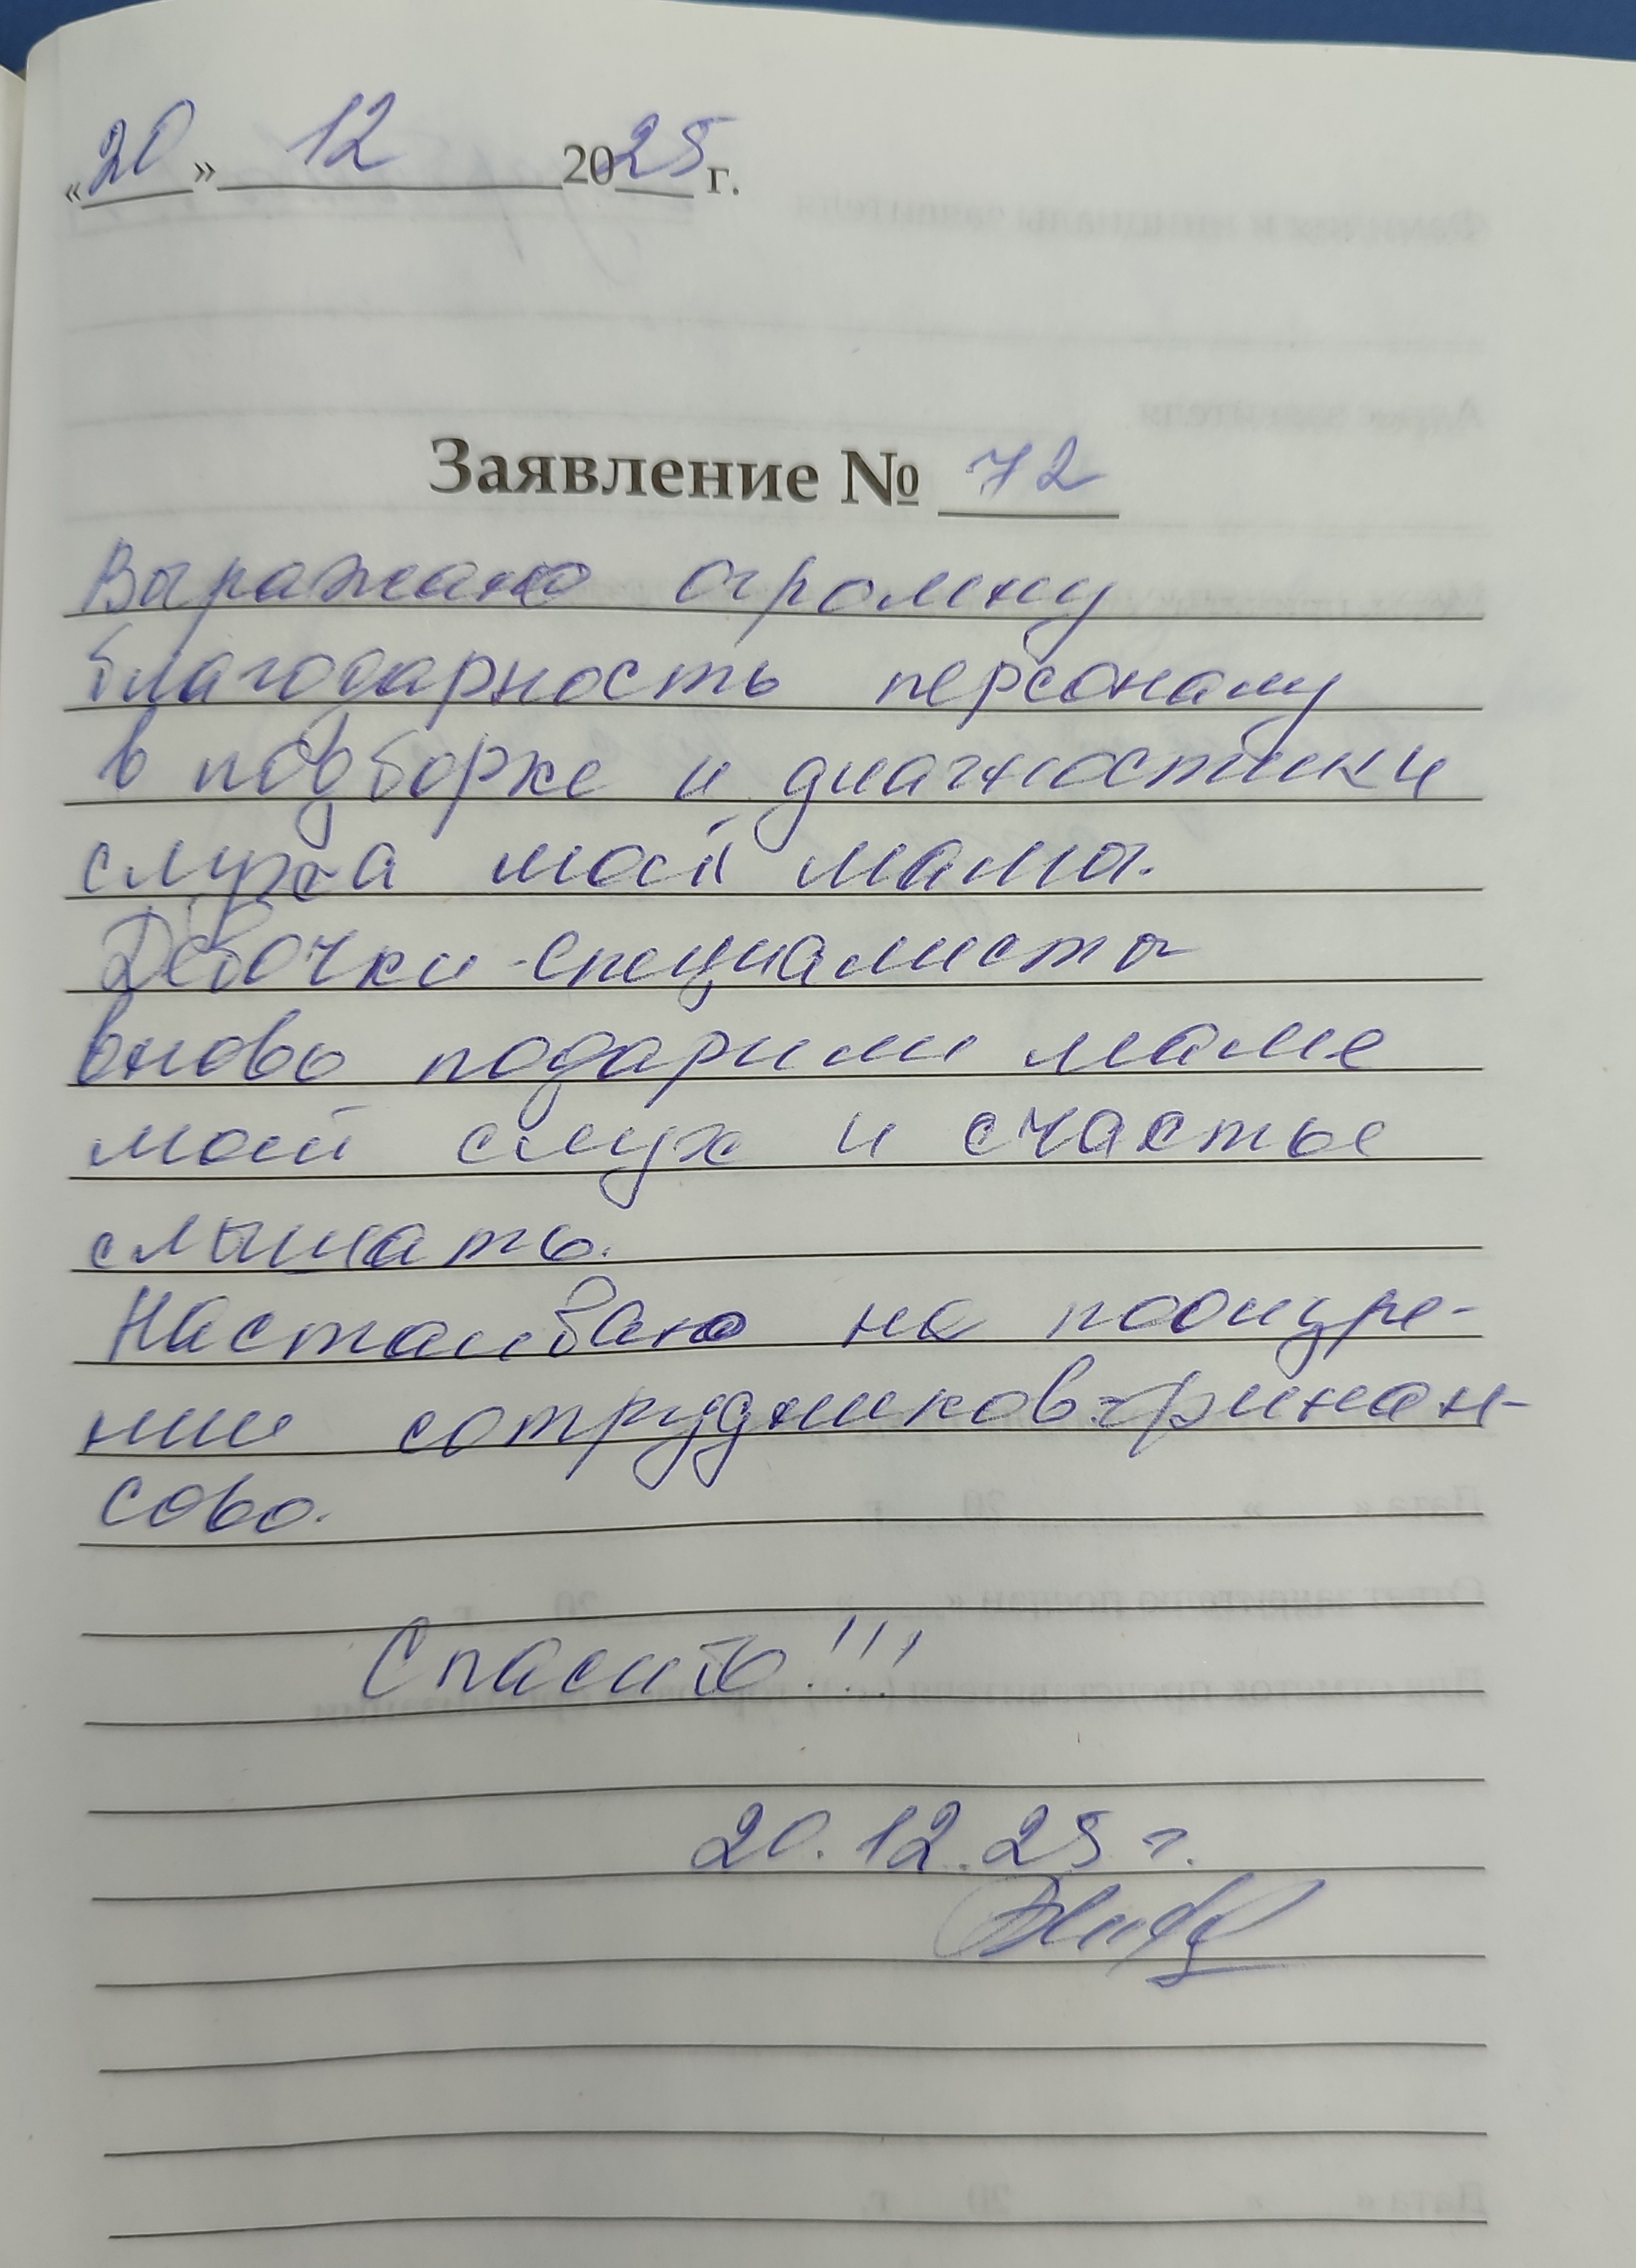 «20» 12 2025 г.
Заявление № 72
Выражаю огромну
благодарность персоналу
в подборке и диагностики
слуха моей мамы.
Девочки-специалисты
вновь подарили маме
моей слух и счастье
слышать.
Настаиваю на поощре-
нии сотрудников-финан-
сово.
Спасибо!!!
20.12.25 г.